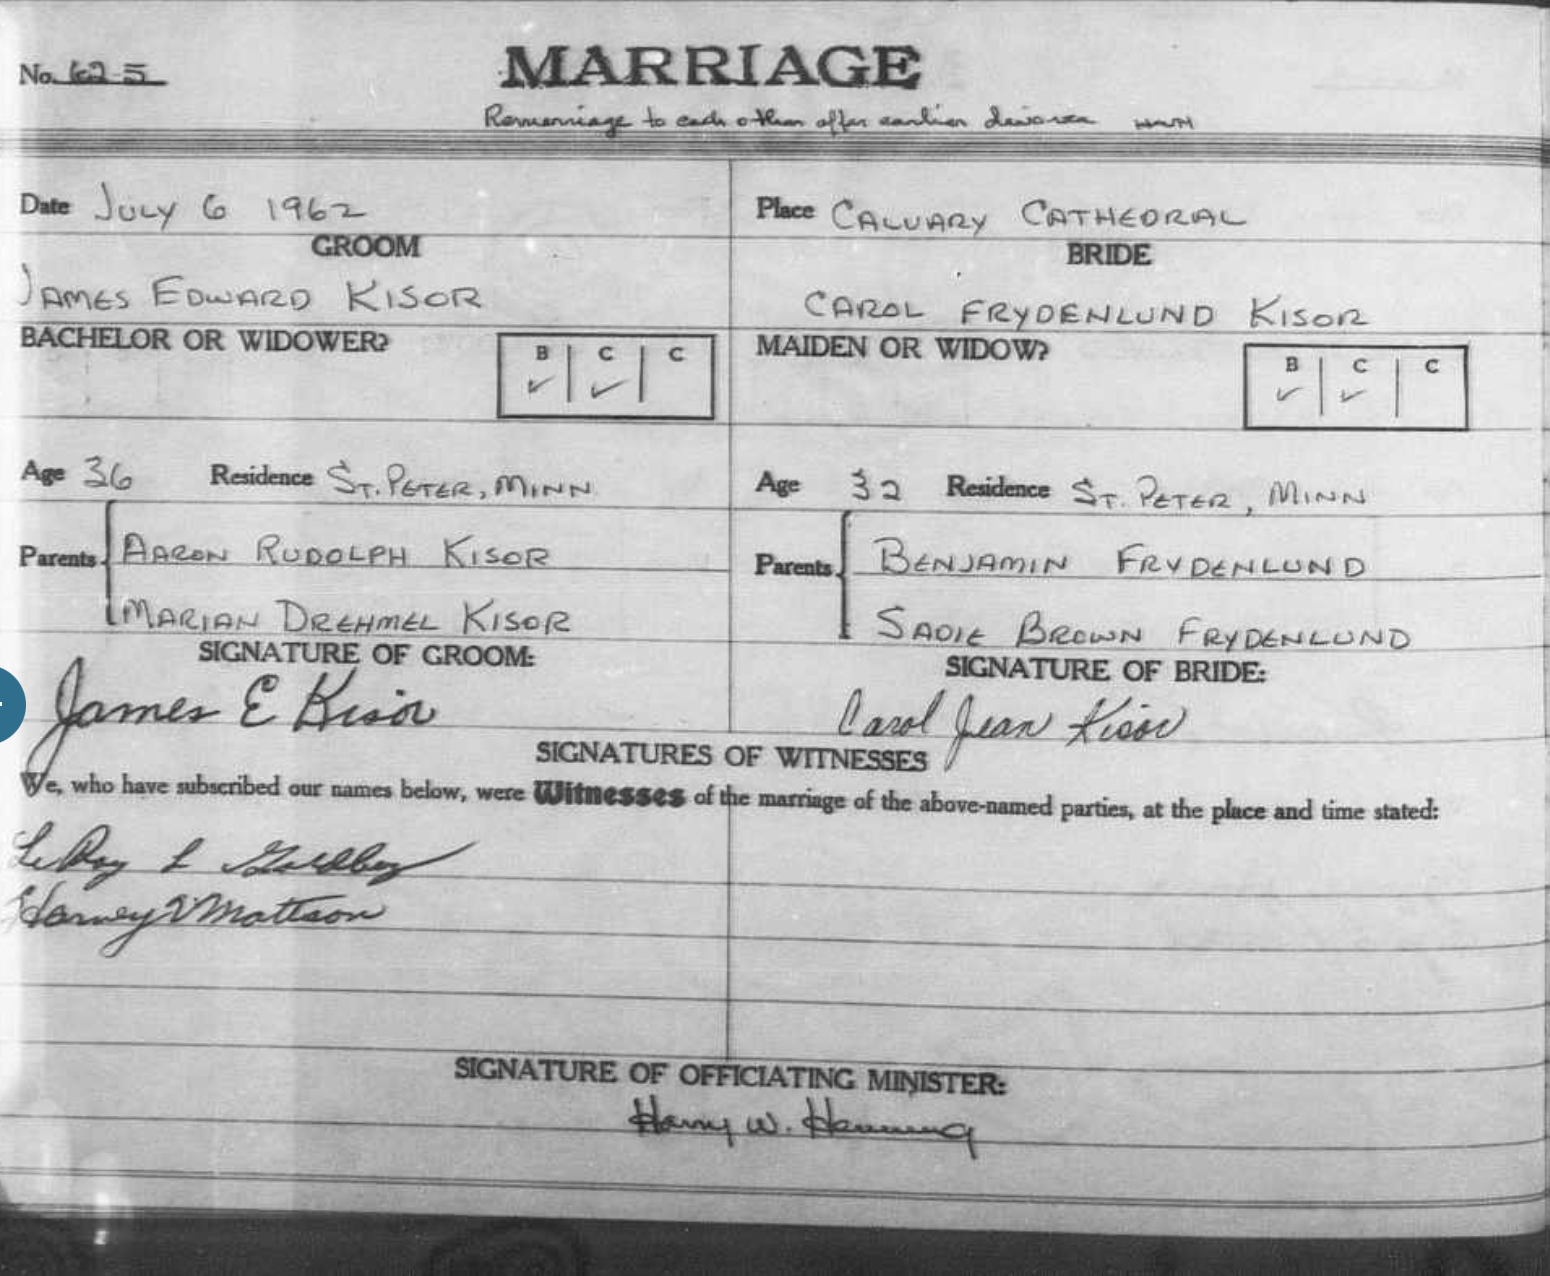 No. 62-5
MARRIAGE
Remarriage to each other after earlier divorce HWH
Date JULY 6 1962
Place CALVARY CATHEDRAL
GROOM
BRIDE
JAMES EDWARD KISOR
CAROL FRYDENLUND KISOR
BACHELOR OR WIDOWER?
B C C
✓ ✓
MAIDEN OR WIDOW?
B C C
✓ ✓
Age 36 Residence ST. PETER, MINN
Age 32 Residence ST. PETER, MINN
Parents AARON RUDOLPH KISOR
MARIAN DREHMEL KISOR
Parents BENJAMIN FRYDENLUND
SADIE BROWN FRYDENLUND
SIGNATURE OF GROOM:
SIGNATURE OF BRIDE:
James E Kisor
Carol Jean Kisor
SIGNATURES OF WITNESSES
We, who have subscribed our names below, were Witnesses of the marriage of the above-named parties, at the place and time stated:
LeRoy L
Harvey V Mattson
SIGNATURE OF OFFICIATING MINISTER:
Harry W. Henning